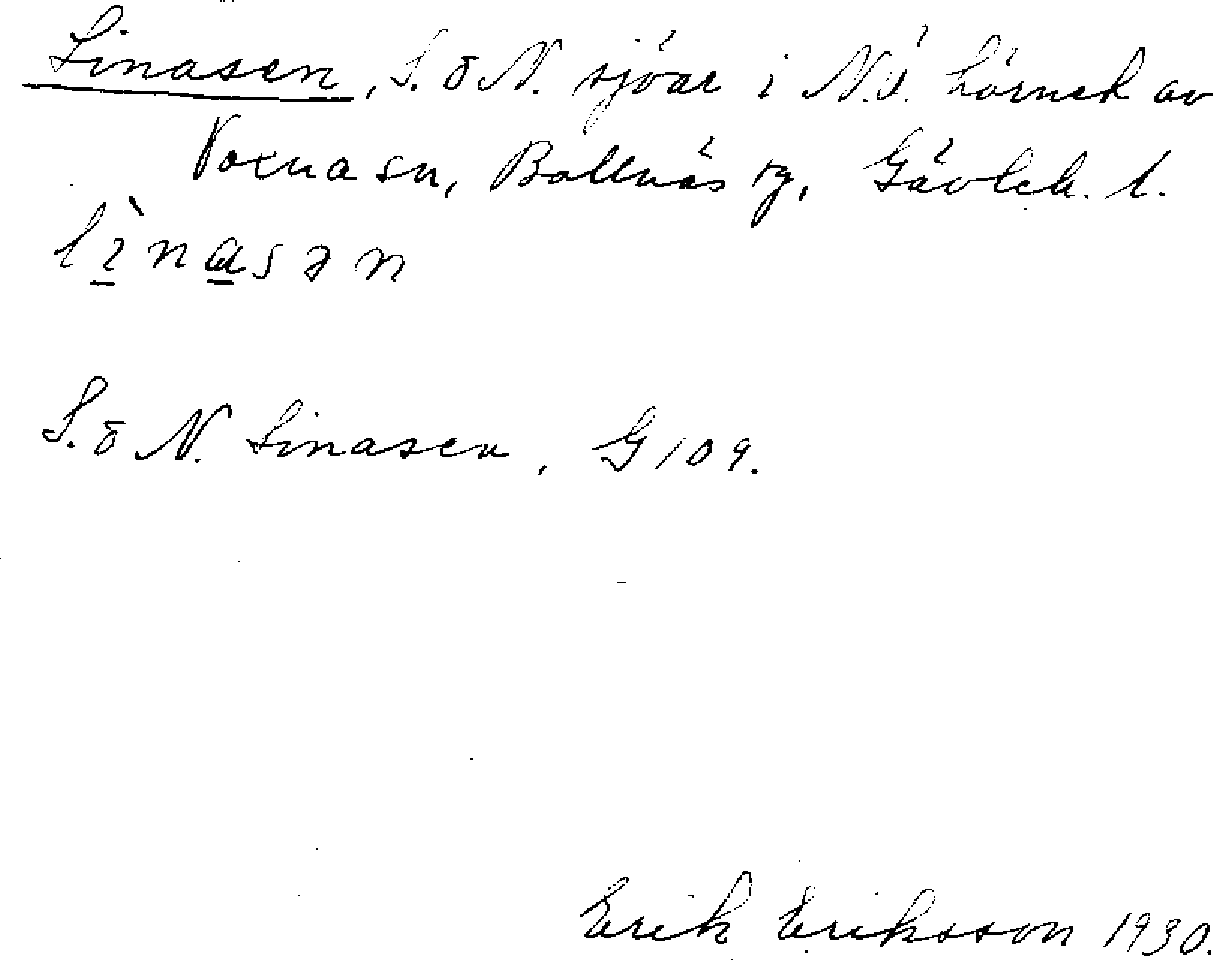 Linasen, S. o N. sjöar i N.V. hörnet av
Voxna sn, Bollnäs tg, Gävleb. l.
lìnasən
S. o N. Linasen, G 109.
Erik Eriksson 1930.